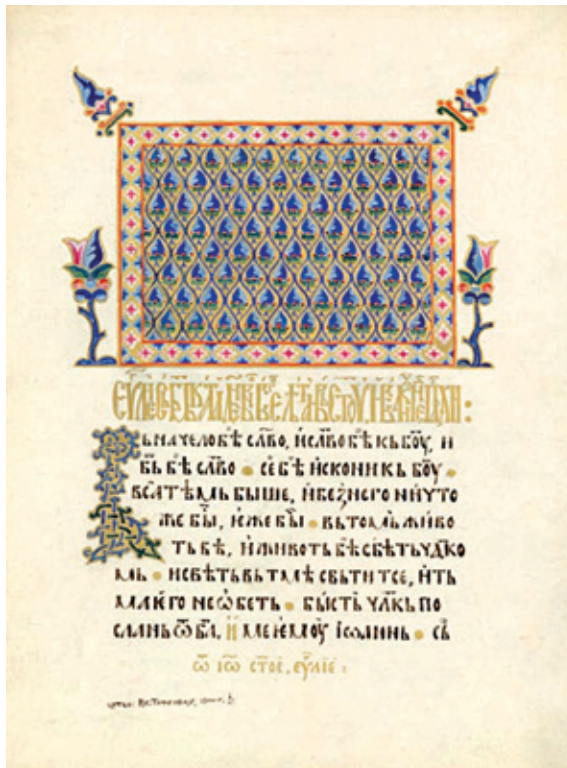 ЬНАЧЕЛОБѢ СЛ҃ВО, ИСЛ҃ВОБѢ КЬБО҃У, И
Б҃Ь БѢ СЛ҃ВО • СЕ БѢ ИСКОНИ КЬ БО҃У •
ВСАТѢМЬ БЫШЕ, ИБЕЗ НЕГО НИЧТО
ЖЕ БЫ҃, ИЖЕ БЫ҃ • ВЬТОМЬ ЖИВО
ТЬ БѢ, ИЖИВОТЬ БѢ СВѢТЬ ЧЛ҃КО
МЬ • ИСВѢТЬ ВЬ ТМѢ СВЬТИТСЕ, ИТЬ
МА ѤГО НЕ ѠБЕТЬ • БЫСТЬ ЧЛ҃КЬ ПО
СЛАНЬ Ѿ Б҃А, ИМЕ ѤМОУ ІѠАННЬ • СЬ҃
Ѿ ІѠ҃ СТ҃ОЕ, ЕѴ҃ЛІЕ :